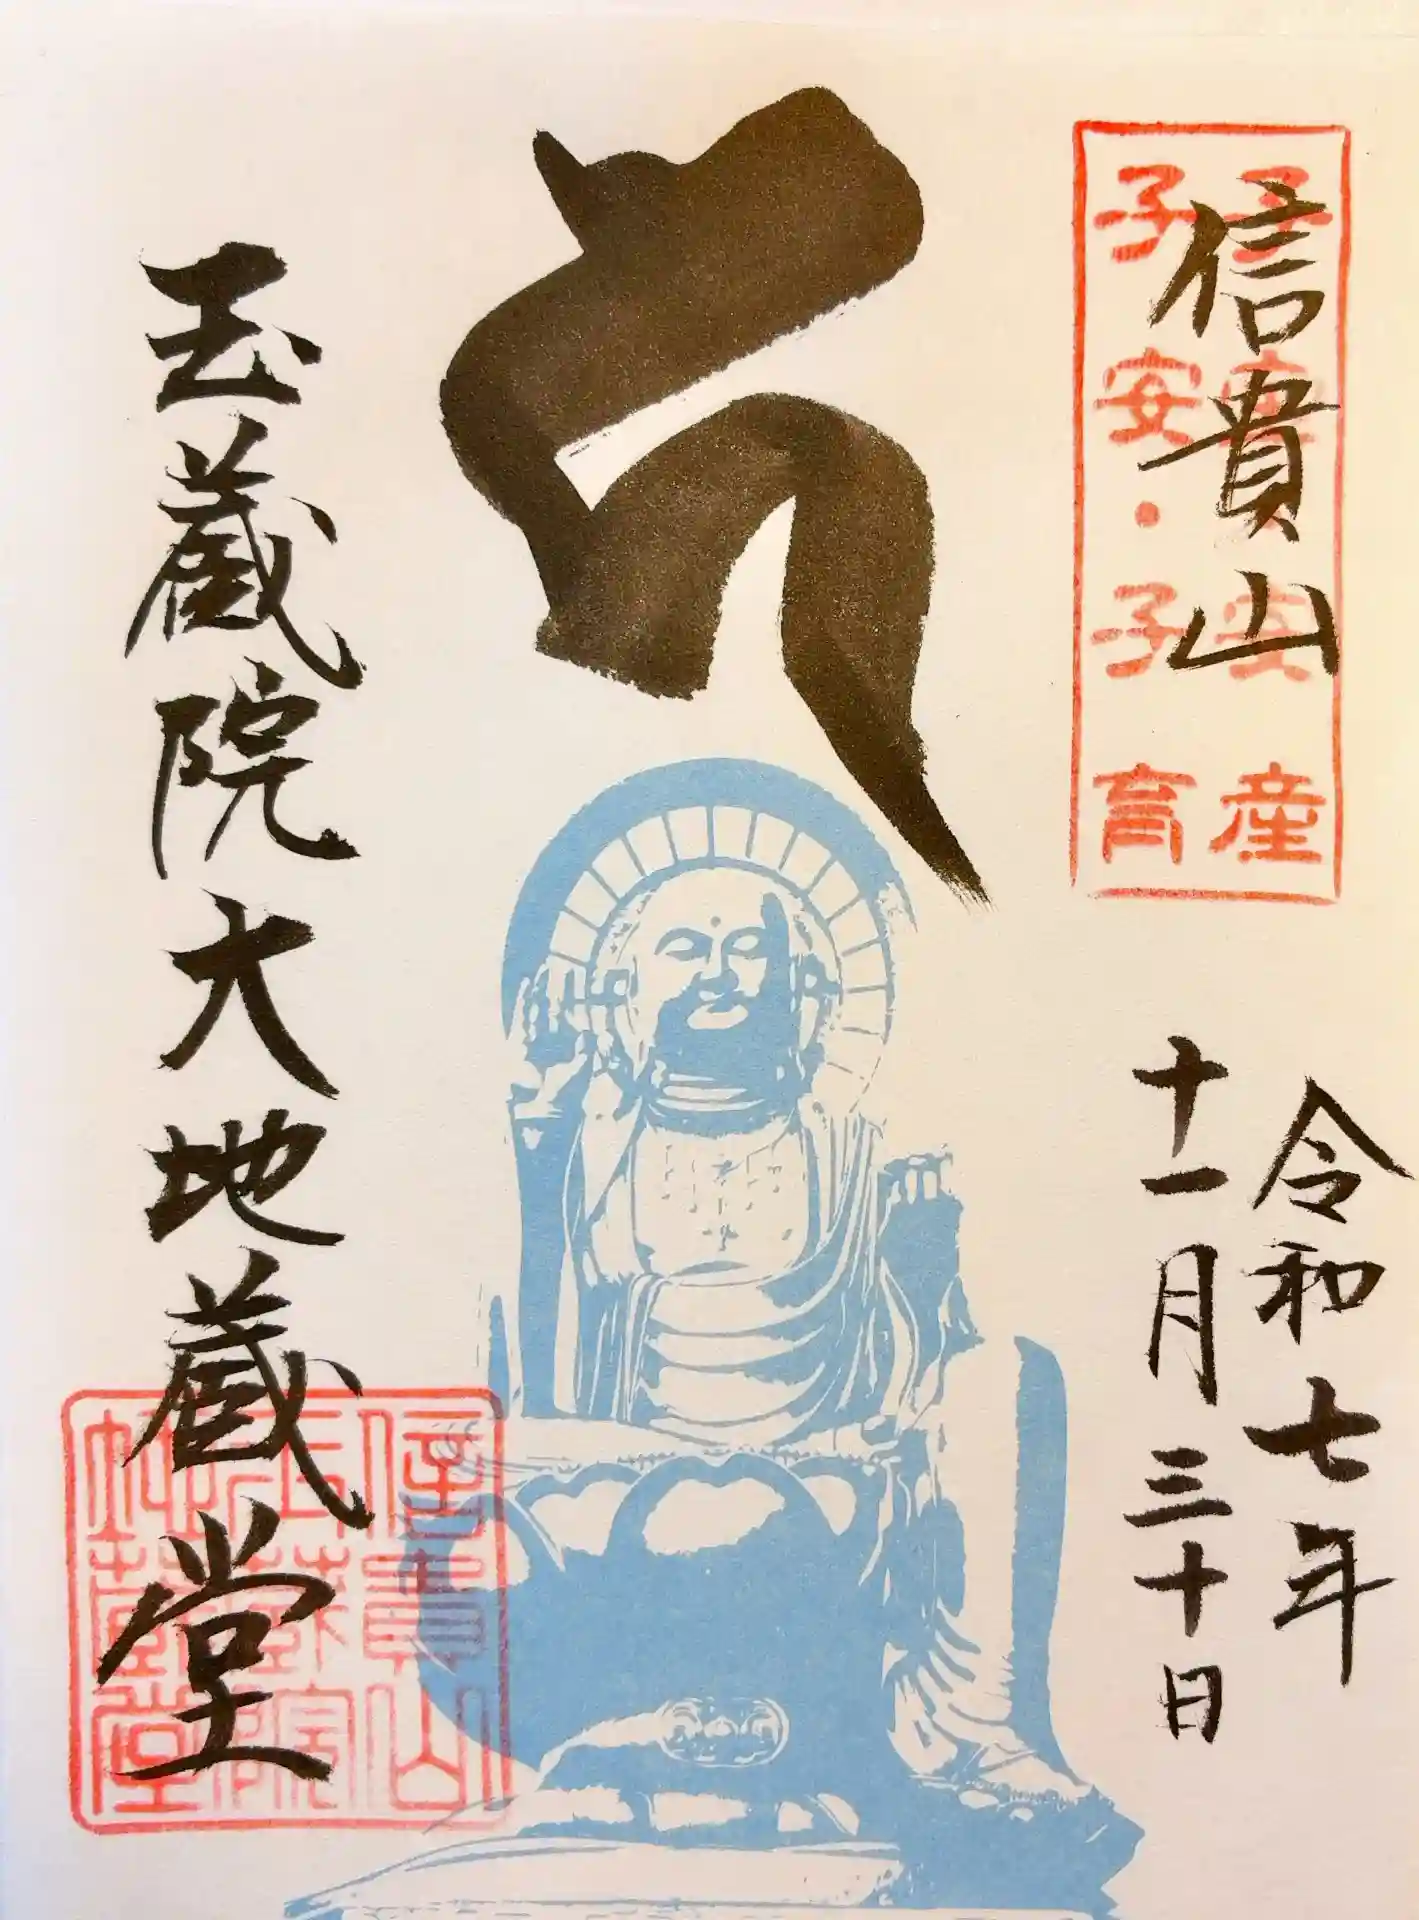 信貴山
子安・安産
子安・子育
令和七年
十一月三十日
玉蔵院大地蔵堂
信貴山
玉蔵院
地蔵堂